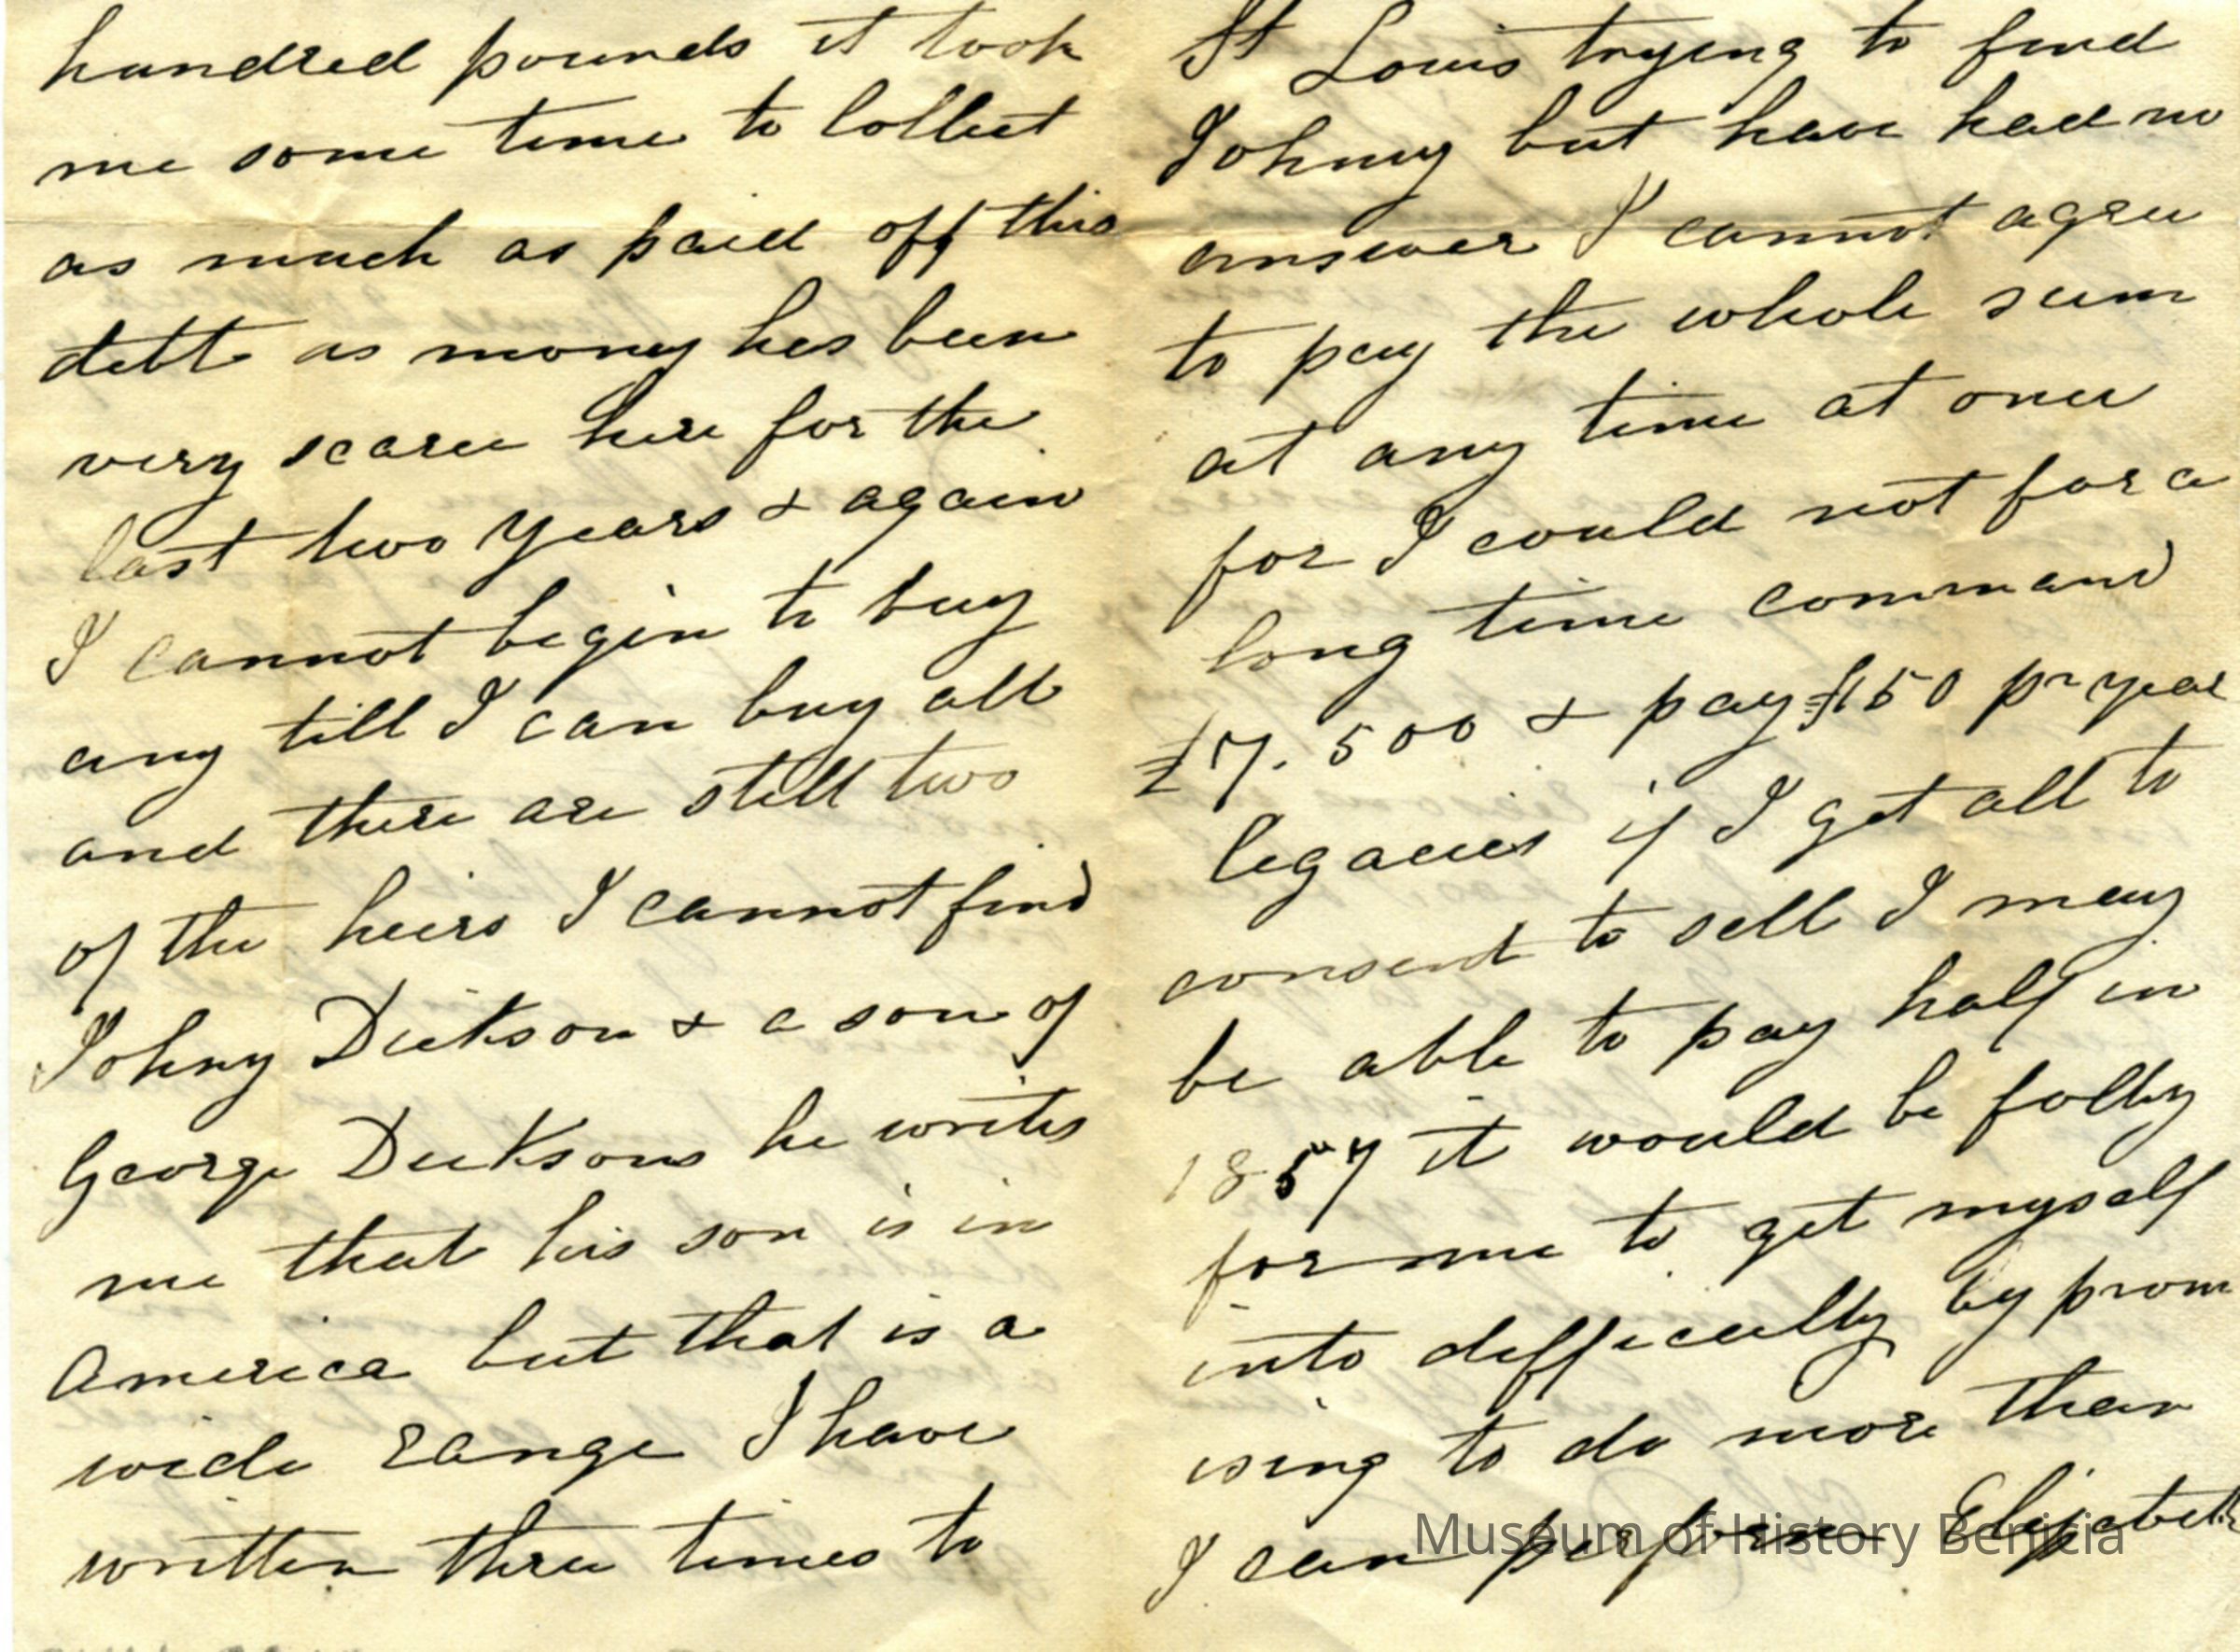 hundred pounds it took
me some time to Collect
as much as paid off this
debt as money hes been
very scarce here for the
last two years & again
I cannot begin to buy
any till I can buy all
and there are still two
of the heirs I cannot find
Johny Dickson & a son of
George Dicksons he writes
me that his son is in
America but that is a
wide range I have
written three times to
St Louis trying to find
Johny but have had no
answer I cannot agree
to pay the whole sum
at any time at once
for I could not for a
long time command
£7.500 & pay £150 pr year
legacies if I get all to
consent to sell I may
be able to pay half in
1857 it would be folly
for me to get myself
into difficulty by prom
ising to do more than
I can perform Elizabeth
Museum of History Benicia